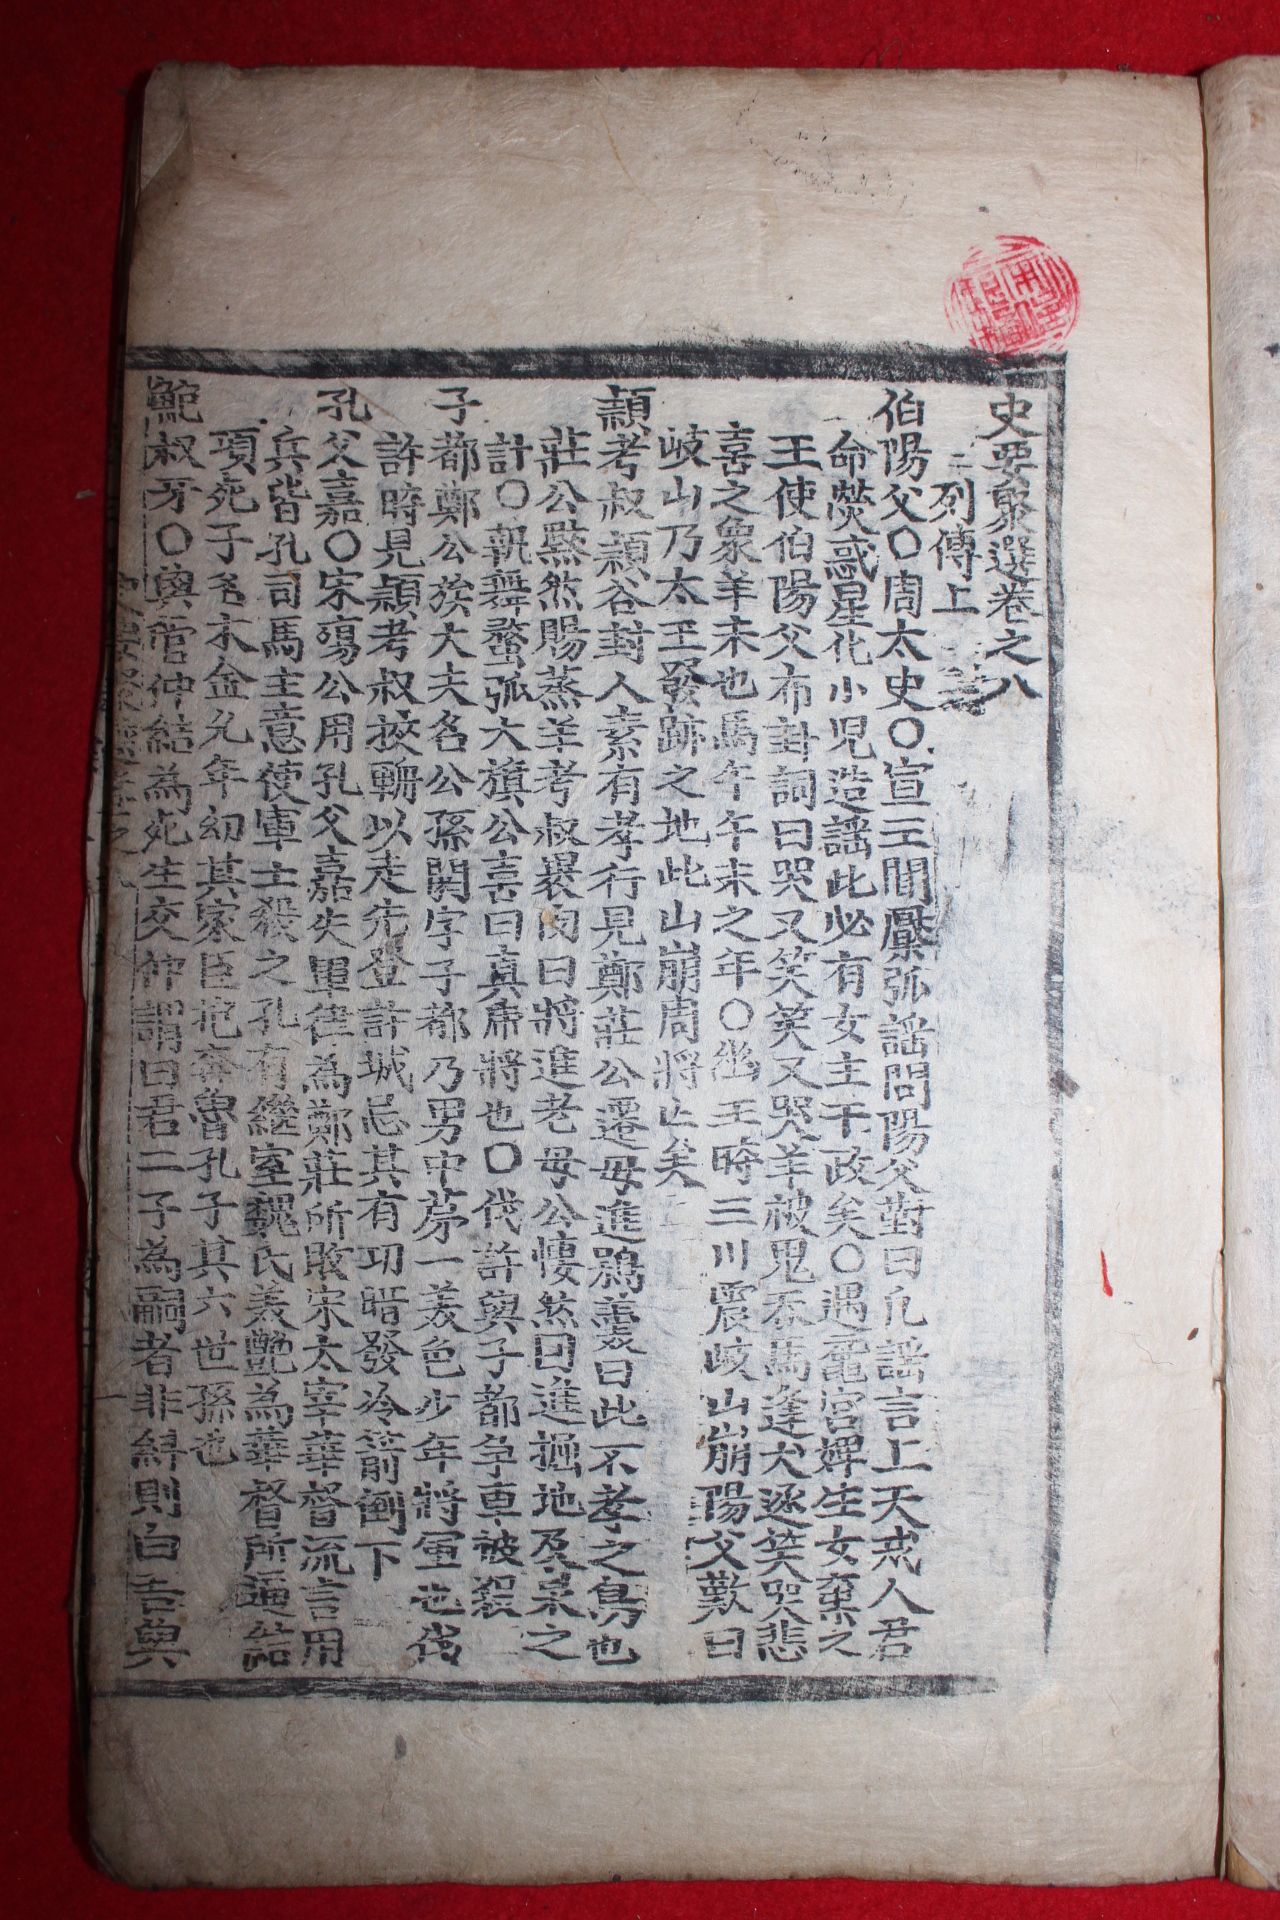 史要聚選卷之八
列傳上
伯陽父○周太史○宣王聞檿弧謠問陽父對曰凡謠言上天戒人君
命熒惑星化小児造謠此必有女主干政矣○遇黿宮婢生女棄之
王使伯陽父布卦詞曰哭又笑笑又哭羊被鬼吞馬逢犬逐笑哭悲
喜之象羊未也馬午午未之年○幽王時三川震岐山崩陽父歎曰
岐山乃太王發跡之地此山崩周將亾矣
頴考叔頴谷封人素有孝行見鄭莊公遷母進鴞羹曰此不孝之鳥也
莊公黙然賜蒸羊考叔裹肉曰將進老母公悽然因進掘地及泉之
計○執舞蝥弧大旗公喜曰真虎將也○伐許與子都爭車被殺
子都鄭公族大夫名公孫閼字子都乃男中苐一美色少年將軍也伐
許時見頴考叔挾輈以走先登許城忌其有功暗發冷箭倒下
孔父嘉○宋殤公用孔父嘉失軍律為鄭莊所敗宋太宰華督流言用
兵皆孔司馬主意使軍士殺之孔有繼室魏氏美艶為華督所逼結
項死子名木金父年幼其家臣抱奔魯孔子其六世孫也
鮑叔牙○與管仲結為死生交仲謂曰君二子為嗣者非糾則白吾與